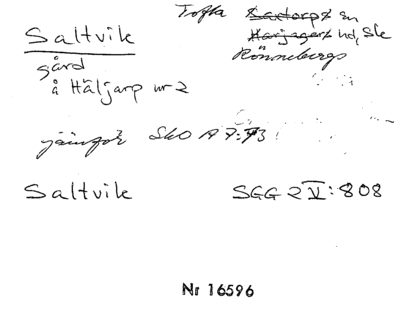 Saltvik
Tofta ~~Saxtorps~~ sn
~~Harjagers~~ hd, Sk
Rönnebergs
gård
å Häljarp nr 2
jämför SkO A 7:73
Saltvik SGG 2 V:808
Nr 16596